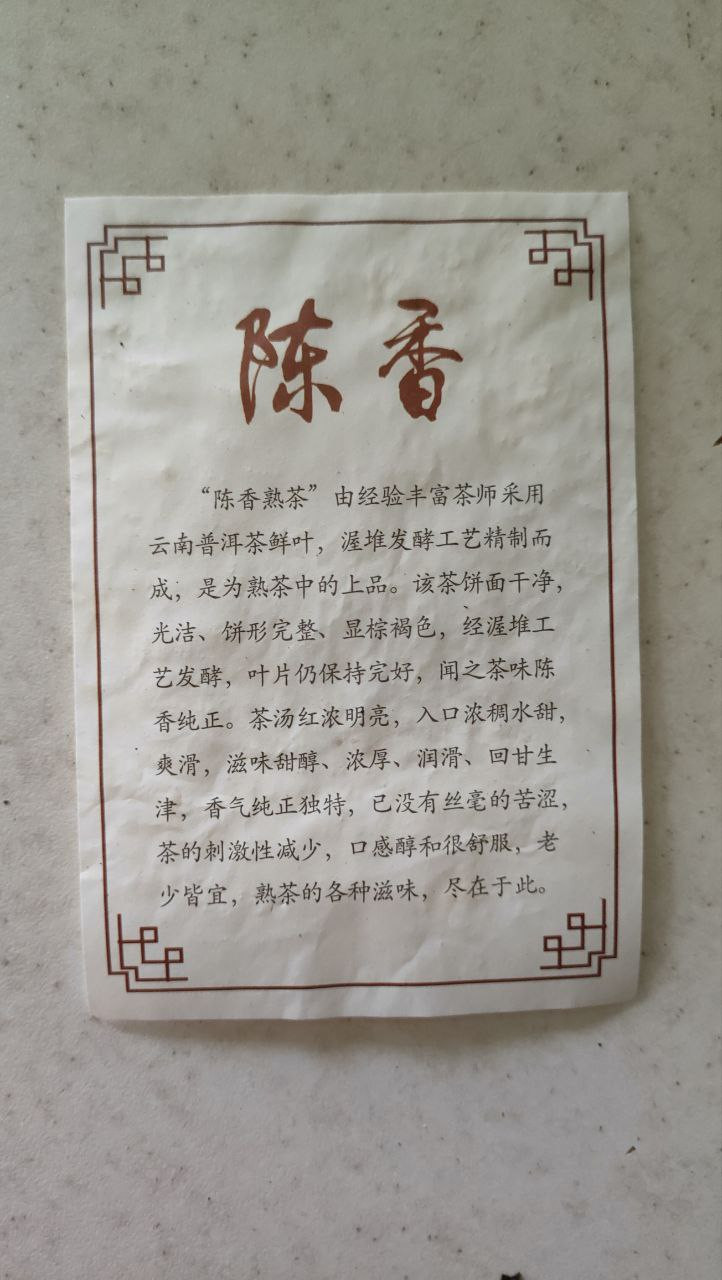 陈香
“陈香熟茶”由经验丰富茶师采用
云南普洱茶鲜叶，渥堆发酵工艺精制而
成，是为熟茶中的上品。该茶饼面干净，
光洁、饼形完整、显棕褐色，经渥堆工
艺发酵，叶片仍保持完好，闻之茶味陈
香纯正。茶汤红浓明亮，入口浓稠水甜，
爽滑，滋味甜醇、浓厚、润滑、回甘生
津，香气纯正独特，已没有丝毫的苦涩，
茶的刺激性减少，口感醇和很舒服，老
少皆宜，熟茶的各种滋味，尽在于此。